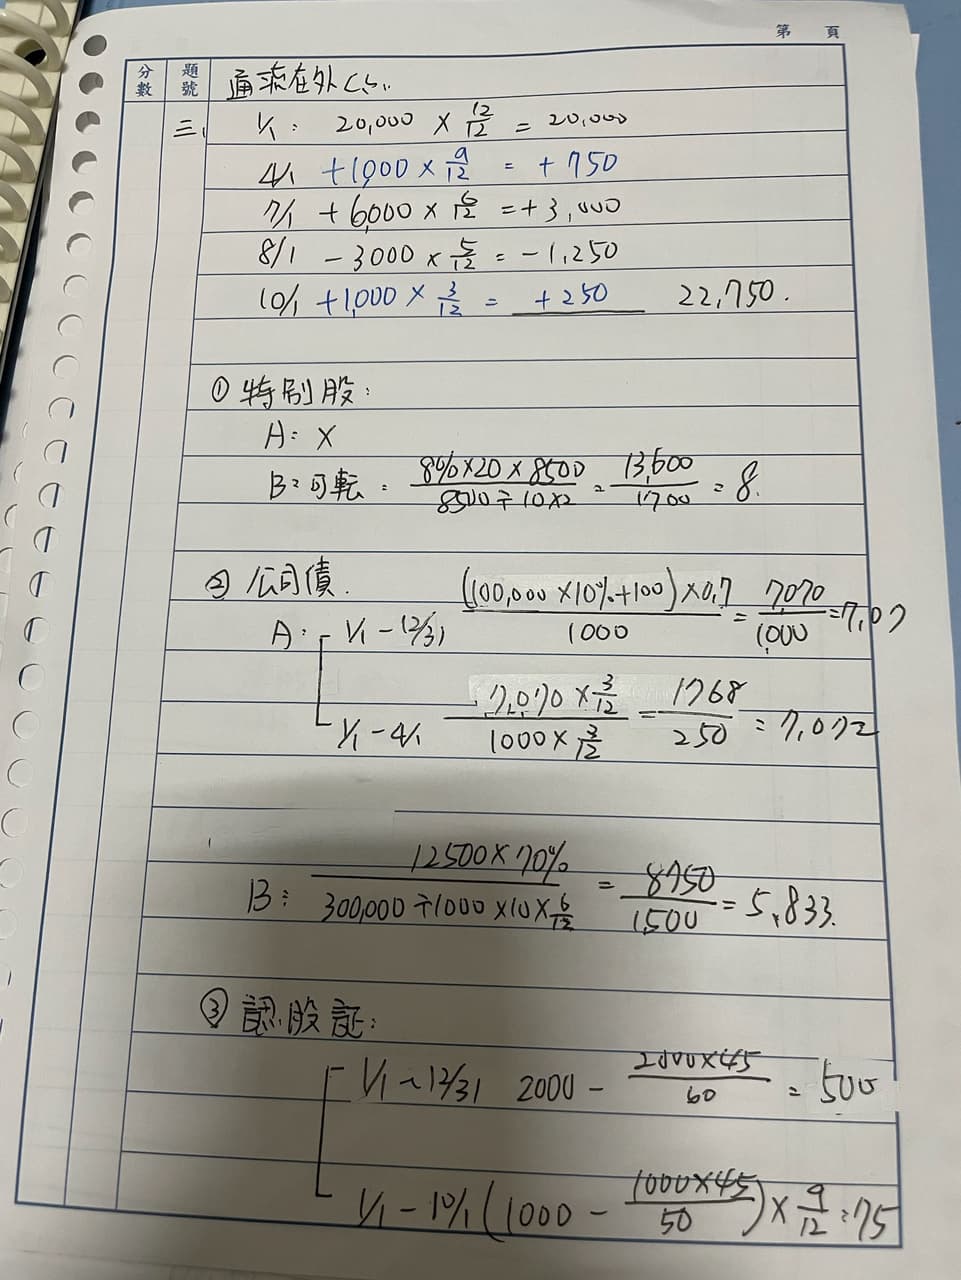 第 頁
分數 題號
通流在外CS..
三、 1/1: 20,000 × 12/12 = 20,000
4/1 +1,000 × 9/12 = +750
7/1 +6,000 × 6/12 = +3,000
8/1 -3000 × 5/12 = -1,250
10/1 +1,000 × 3/12 = +250 22,750.
① 特別股:
A: ×
B: 可転: 8%×20×8500 / 8500÷10×2 = 13,600 / 1700 = 8.
② 公司債.
A: 1/1-12/31 (100,000×10%+100)×0.7 / 1000 = 7,070 / 1,000 = 7.07
1/1-4/1 7,070×3/12 / 1000×3/12 = 1768 / 250 = 7.072
B: 12500×70% / 300,000÷1000×10×6/12 = 8750 / 1,500 = 5.833.
③ 認股証:
1/1~12/31 2000 - 2000×45 / 60 = 500
1/1-10/1 (1000 - 1000×45 / 50) × 9/12 = 75